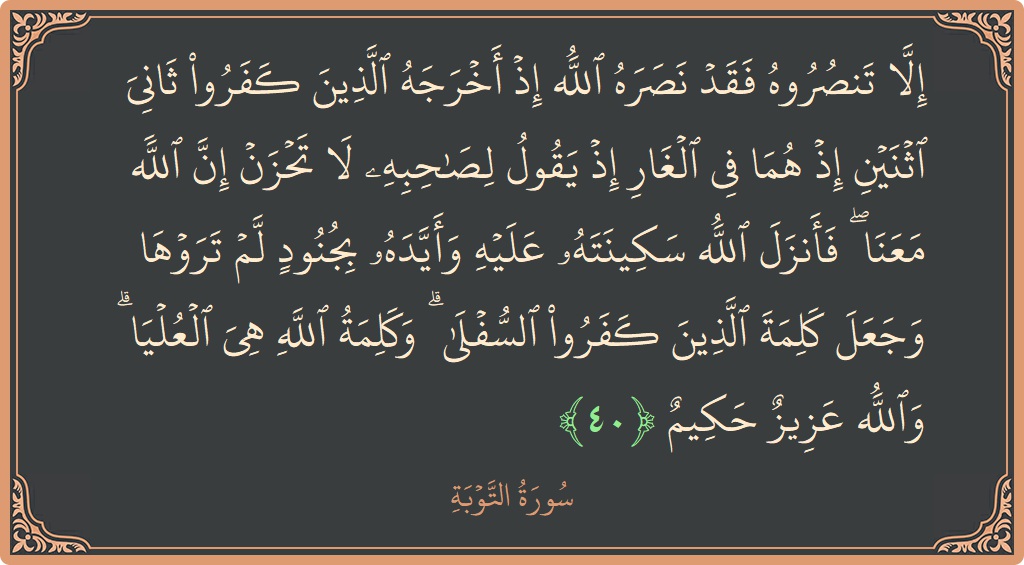 إِلَّا تَنصُرُوهُ فَقَدۡ نَصَرَهُ ٱللَّهُ إِذۡ أَخۡرَجَهُ ٱلَّذِينَ كَفَرُواْ ثَانِيَ
ٱثۡنَيۡنِ إِذۡ هُمَا فِي ٱلۡغَارِ إِذۡ يَقُولُ لِصَٰحِبِهِۦ لَا تَحۡزَنۡ إِنَّ ٱللَّهَ
مَعَنَاۖ فَأَنزَلَ ٱللَّهُ سَكِينَتَهُۥ عَلَيۡهِ وَأَيَّدَهُۥ بِجُنُودٖ لَّمۡ تَرَوۡهَا
وَجَعَلَ كَلِمَةَ ٱلَّذِينَ كَفَرُواْ ٱلسُّفۡلَىٰۗ وَكَلِمَةُ ٱللَّهِ هِيَ ٱلۡعُلۡيَاۗ
وَٱللَّهُ عَزِيزٌ حَكِيمٌ ﴿٤٠﴾
سُورَةُ التَّوۡبَةِ